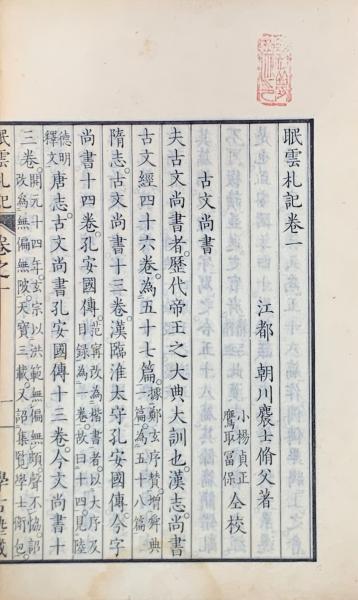 眠雲札記卷一
江都 朝川䴡士脩父著
小楊貞正
鷹取冨保 仝校
古文尚書
夫古文尚書者。歷代帝王之大典大訓也。漢志尚書
古文經四十六卷。為五十七篇。據鄭玄序贊。增舜典一篇。為五十八篇
隋志。古文尚書十三卷。漢臨淮太守孔安國傳。今字
尚書十四卷。孔安國傳。范甯改為楷書者。以大序及目錄為一卷。故曰十四。見陸
德明釋文。唐志。古文尚書孔安國傳十三卷。今文尚書十
三卷。開元十四年。玄宗以洪範無偏無頗。聲不恊。詔改為無偏無陂。天寶三載。又詔集賢學士衛包
眠雲札記
卷之一
一
學古塾藏